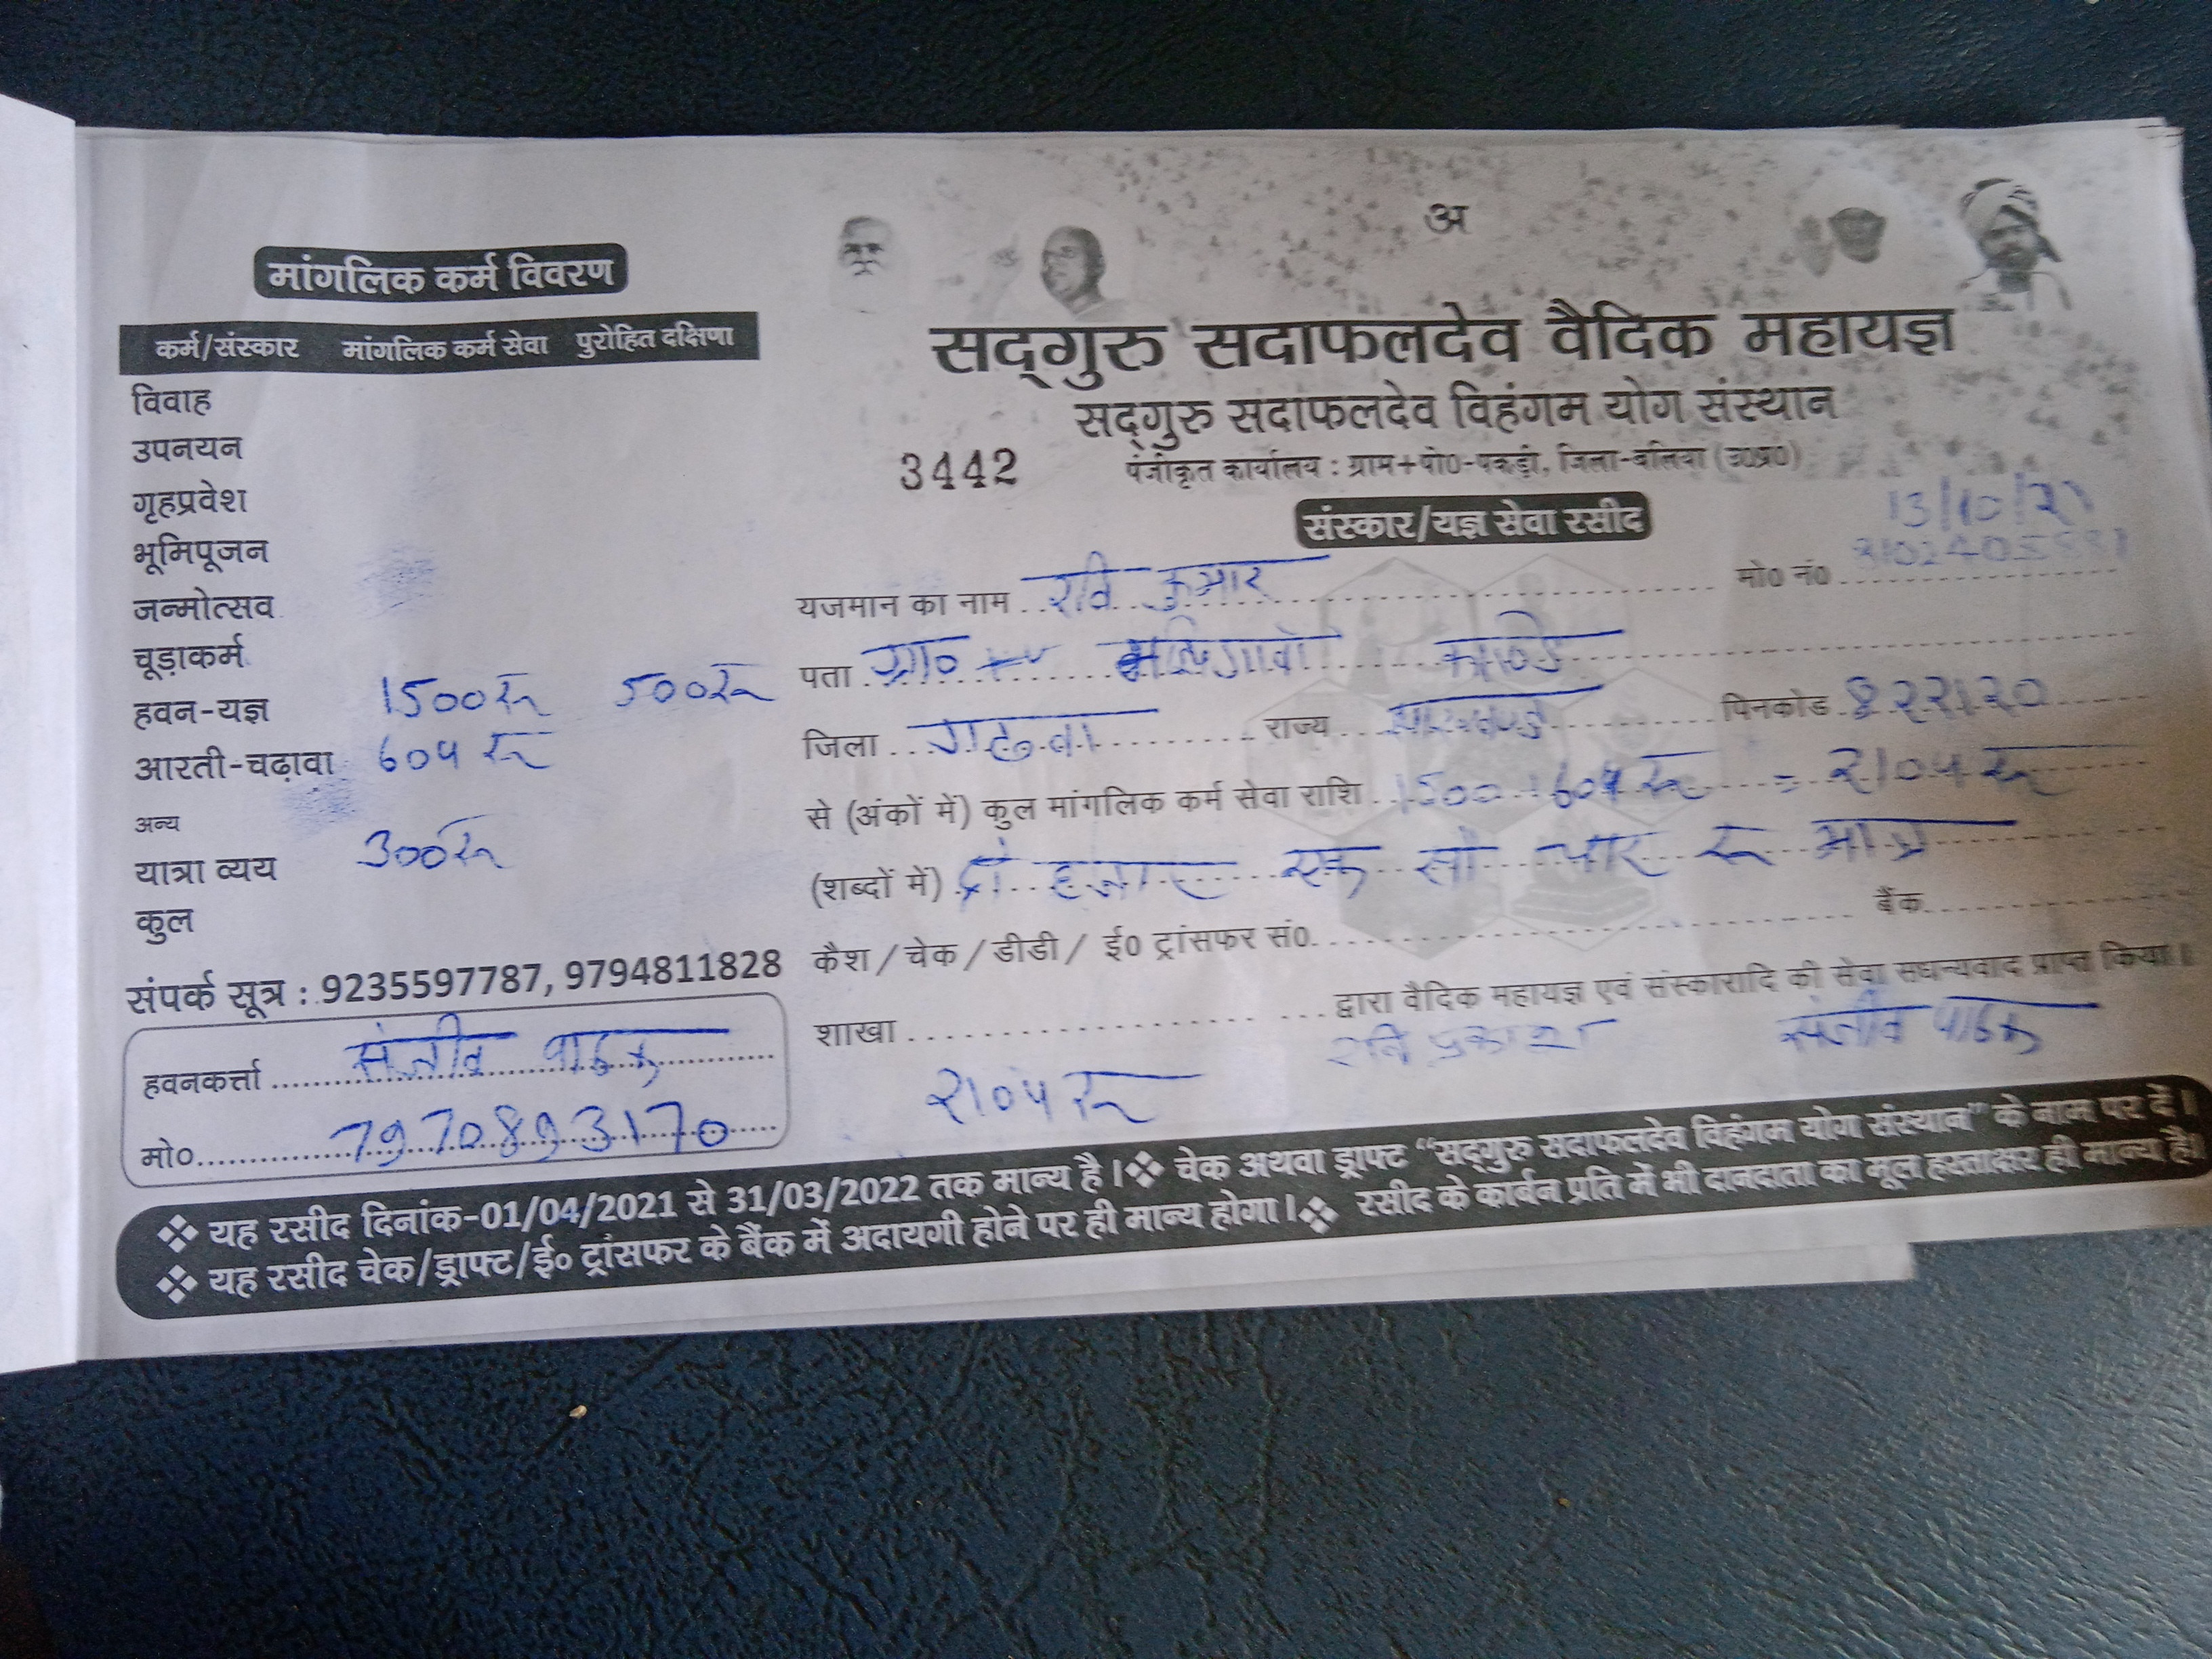 मांगलिक कर्म विवरण
कर्म/संस्कार मांगलिक कर्म सेवा पुरोहित दक्षिणा
विवाह
उपनयन
गृहप्रवेश
भूमिपूजन
जन्मोत्सव
चूड़ाकर्म
हवन-यज्ञ 1500रू 500रू
आरती-चढ़ावा 604 रू
अन्य
यात्रा व्यय 300रू
कुल
संपर्क सूत्र : 9235597787, 9794811828
हवनकर्त्ता संजीव पाठक
मो० 7970893170
अ
सद्गुरु सदाफलदेव वैदिक महायज्ञ
सद्गुरु सदाफलदेव विहंगम योग संस्थान
3442 पंजीकृत कार्यालय : ग्राम+पो0-पकड़ी, जिला-बलिया (उ0प्र0)
संस्कार/यज्ञ सेवा रसीद
13/10/21
यजमान का नाम रवि कुमार मो0 नं0
पता ग्रा०
जिला गढ़वा राज्य झारखण्ड पिनकोड 822120
से (अंकों में) कुल मांगलिक कर्म सेवा राशि 1500 + 604 रू = 2104 रू
(शब्दों में) दो हजार एक सौ चार रू मात्र
कैश / चेक / डीडी / ई0 ट्रांसफर सं0 बैंक
शाखा द्वारा वैदिक महायज्ञ एवं संस्कारादि की सेवा सधन्यवाद प्राप्त किया।
2104 रू रवि प्रकाश संजीव पाठक
❖ यह रसीद दिनांक-01/04/2021 से 31/03/2022 तक मान्य है। ❖ चेक अथवा ड्राफ्ट “सद्गुरु सदाफलदेव विहंगम योग संस्थान” के नाम पर दें।
❖ यह रसीद चेक/ड्राफ्ट/ई० ट्रांसफर के बैंक में अदायगी होने पर ही मान्य होगा। ❖ रसीद के कार्बन प्रति में भी दानदाता का मूल हस्ताक्षर ही मान्य है।